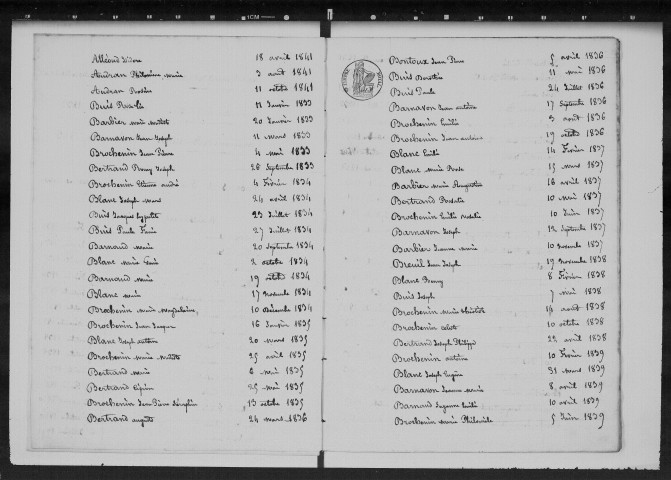 1CM
Alléoud Isidore 18 avril 1841
Audran Philomène Marie 3 août 1841
Audran Rosine 11 octobre 1841
Buis Rosalie 11 Janvier 1833
Barbier Marie 20 Janvier 1833
Barnavon Jean Joseph 11 mars 1833
Brochenin Jean Pierre 4 mai 1833
Bertrand Remy Joseph 26 Septembre 1833
Brochenin Etienne andré 4 Février 1834
Blanc Joseph Marc 24 avril 1834
Buis Jacques hyppolite 23 Juillet 1834
Buis Paule 27 Juillet 1834
Barnaud Marie 20 Septembre 1834
Blanc Marie 2 octobre 1834
Barnaud Marie 19 octobre 1834
Blanc Marie 17 Novembre 1834
Brochenin Marie Magdelaine 10 Décembre 1834
Brochenin Jean Jacques 16 Janvier 1835
Blanc Joseph antoine 20 mars 1835
Brochenin Marie 25 avril 1835
Bertrand Marie 6 mai 1835
Bertrand Cyprien 25 mai 1835
Brochenin Jean Pierre Séraphin 13 octobre 1835
Bertrand auguste 24 mars 1836
Bontoux Jean Pierre 5 avril 1836
Buis 11 mai 1836
Buis Paule 24 Juillet 1836
Barnavon Jean antoine 17 Septembre 1836
Brochenin Emilie 3 août 1836
Brochenin Jean antoine 19 octobre 1836
Blanc Emilie 14 Février 1837
Blanc Marie Rose 15 mars 1837
Barbier Marie Augustine 16 avril 1837
Bertrand 10 mai 1837
Brochenin Emilie 10 Juin 1837
Barnavon Joseph 12 Septembre 1837
Barbier Jeanne Marie 10 Novembre 1837
Breuil Jean Joseph 19 Novembre 1838
Blanc Remy 8 Février 1838
Buis Joseph 7 mai 1838
Brochenin Marie 14 août 1838
Brochenin 10 octobre 1838
Bertrand Joseph Philippe 22 avril 1838
Brochenin antoine 10 Février 1839
Blanc Joseph Eugène 31 mars 1839
Barnavon Jeanne Marie 8 avril 1839
Barnaud Suzanne Emilie 10 avril 1839
Brochenin Marie 5 Juin 1839